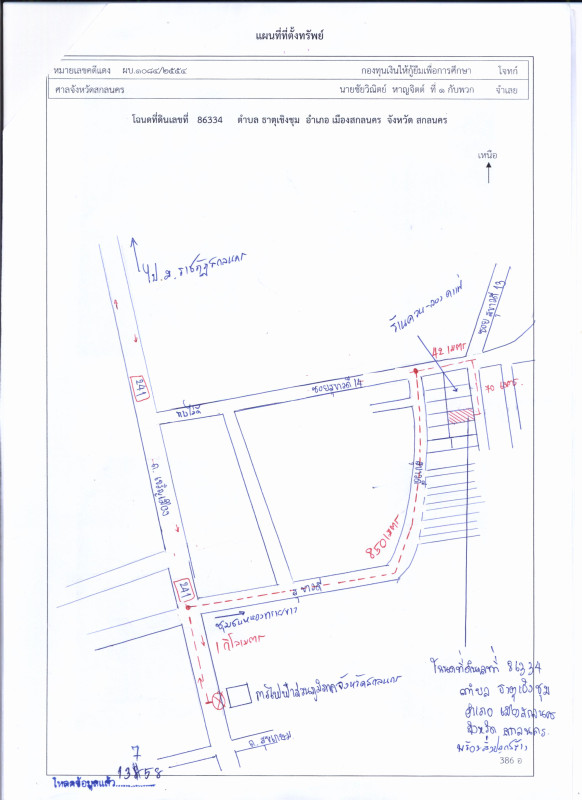 แผนที่ที่ตั้งทรัพย์
หมายเลขคดีแดง ผบ.๑๐๘๔/๒๕๕๔ กองทุนเงินให้กู้ยืมเพื่อการศึกษา โจทก์
ศาลจังหวัดสกลนคร นายชัยวิณิตย์ หาญจิตต์ ที่ ๑ กับพวก จำเลย
โฉนดที่ดินเลขที่ 86334 ตำบล ธาตุเชิงชุม อำเภอ เมืองสกลนคร จังหวัด สกลนคร
เหนือ
ไป ม. ราชภัฏสกลนคร
ซอย สุขาวดี 13
42 เมตร
70 เมตร
ซอยสุขาวดี 14
241
ถ. เจริญเมือง
สุขาวดี
850 เมตร
241
สุขาวดี
1 กิโลเมตร
การไฟฟ้าส่วนภูมิภาคจังหวัดสกลนคร
ถ. สุขเกษม
โฉนดที่ดินเลขที่ 86334
ตำบล ธาตุเชิงชุม
อำเภอ เมืองสกลนคร
จังหวัด สกลนคร
พร้อมสิ่งปลูกสร้าง
386 อ
โหลดข้อมูลแล้ว